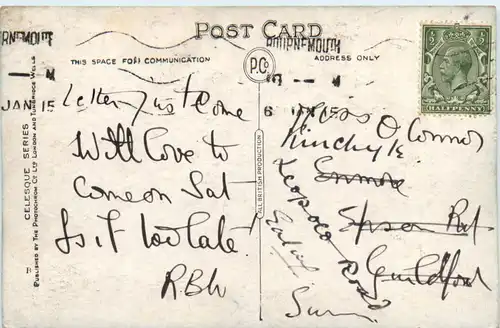 POST CARD
BOURNEMOUTH
RNEMOUTH
THIS SPACE FOR COMMUNICATION
P.Co
ADDRESS ONLY
HALFPENNY
JAN 15
6
Letter just come
Will love to
come on Sat
Is it too late?
RBW
Miss O Connor
Epsom Rd
Guildford
Leopold Road
CELESQUE SERIES
PUBLISHED BY THE PHOTOCHROM CO LTD LONDON AND TUNBRIDGE WELLS
ALL BRITISH PRODUCTION